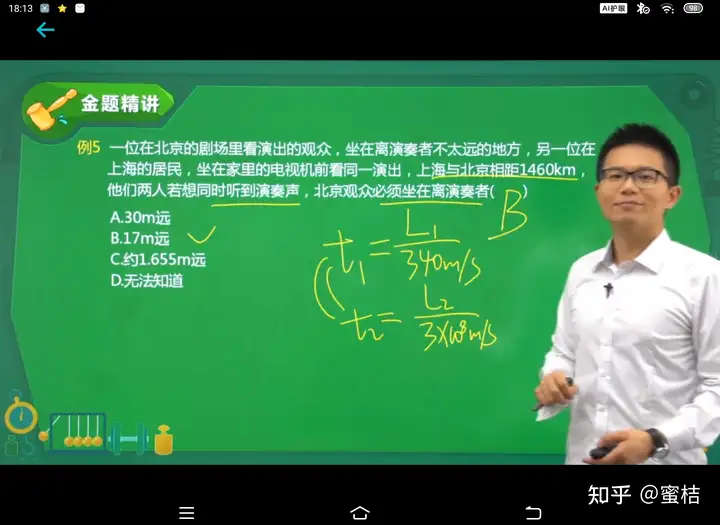 18:13
AI护眼
98
金题精讲
例5 一位在北京的剧场里看演出的观众，坐在离演奏者不太远的地方，另一位在
上海的居民，坐在家里的电视机前看同一演出，上海与北京相距1460km，
他们两人若想同时听到演奏声，北京观众必须坐在离演奏者( B )
A.30m远
B.17m远
C.约1.655m远
D.无法知道
t₁=L₁/340m/s
t₂=L₂/3×10⁸m/s
知乎 @蜜桔